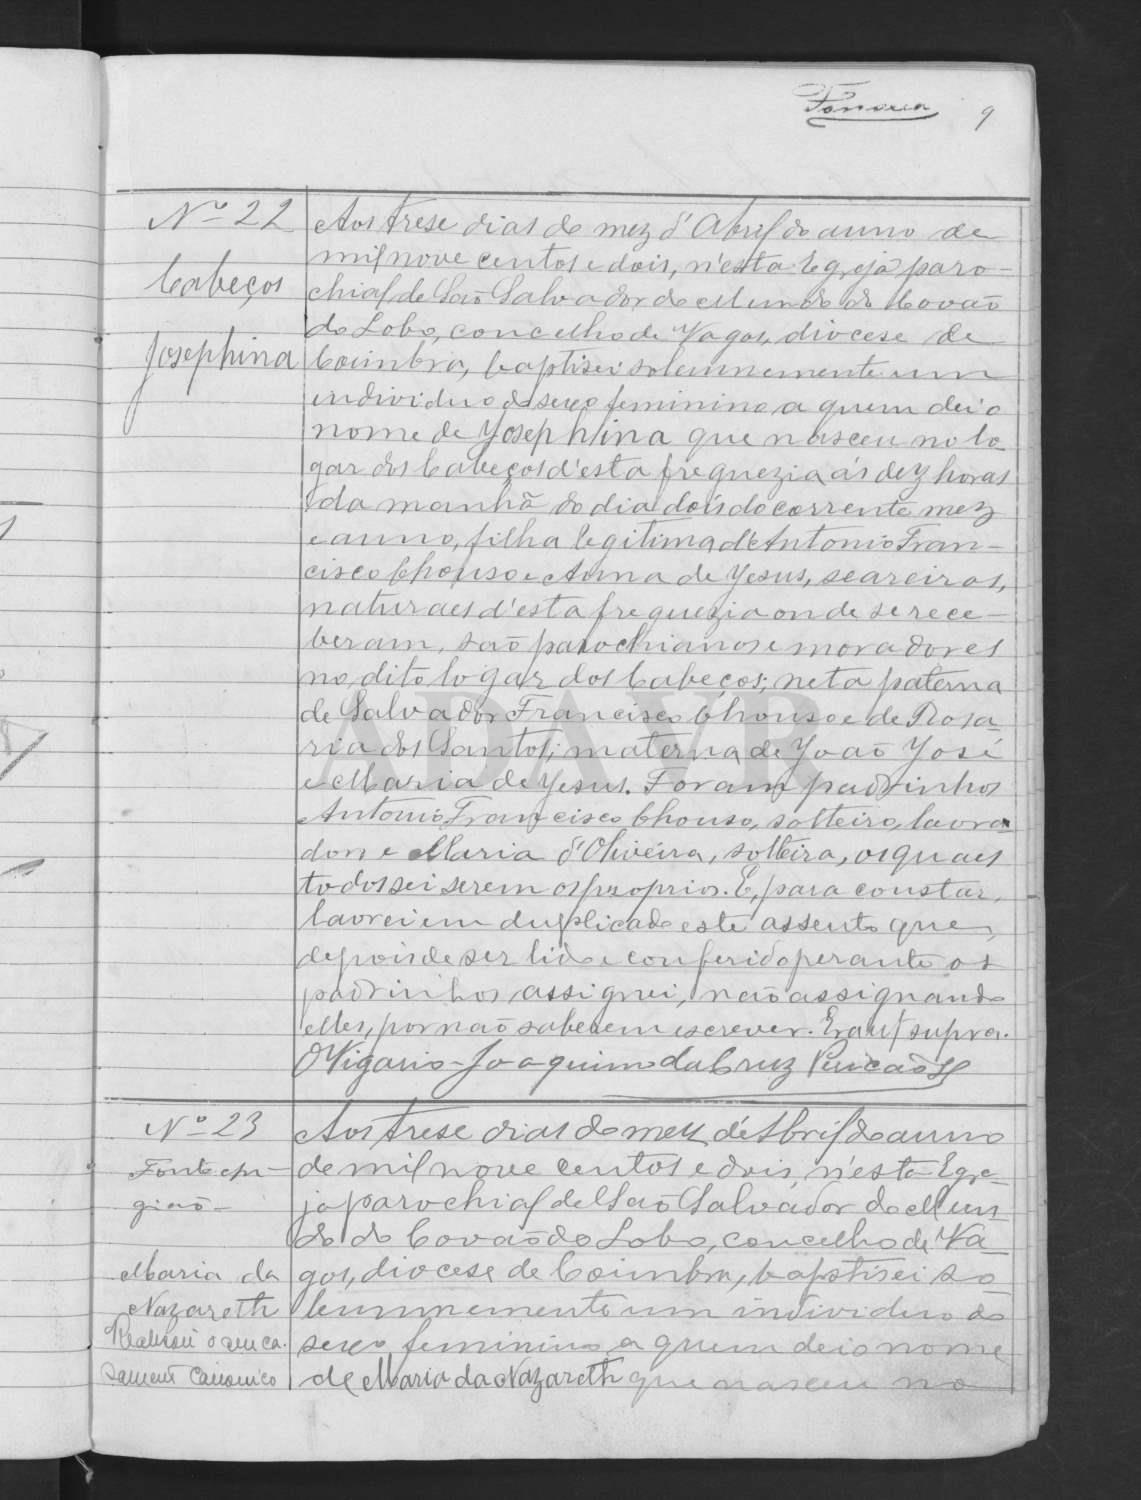 Fonseca 9
Nº 22
Cabeços
Josephina
Aos trese dias do mez d'Abril do anno de
mil nove centos e dois, n'esta Egreja paro-
chial de São Salvador do Mundo do Covão
do Lobo, concelho de Vagos, diocese de
Coimbra, baptisei solemnemente um
individuo do sexo feminino a quem dei o
nome de Josephina que nasceu no lo
gar dos Cabeços d'esta freguezia ás dez horas
da manhã do dia dois do corrente mez
e anno, filha legitima d'Antonio Fran-
cisco Chouso e Anna de Jesus, seareiros,
naturaes d'esta freguezia onde se rece-
beram, são parochianos e moradores
no dito logar dos Cabeços; neta paterna
de Salvador Francisco Chouso e de Rosa-
ria dos Santos; materna de João José
e Maria de Jesus. Foram padrinhos
Antonio Francisco Chouso, solteiro, lavra
dor e Maria d'Oliveira, solteira, os quaes
todos sei serem os proprios. E, para constar,
lavrei em duplicado este assento que,
depois de ser lido e conferido perante os
padrinhos assignei, não assignando
elles, por não saberem escrever. Era ut supra.
O Vigario Joaquim da Cruz
Nº 23
Fonte
gião
Maria da
Nazareth
Realisou o seu ca.
samento Canonico
Aos trese dias do mez d'Abril do anno
de mil nove centos e dois, n'esta Egre-
ja parochial de São Salvador do Mun-
do do Covão do Lobo, concelho de Va-
gos, diocese de Coimbra, baptisei so
lemnemente um individuo do
sexo feminino a quem dei o nome
de Maria da Nazareth que nasceu no
ADAVR